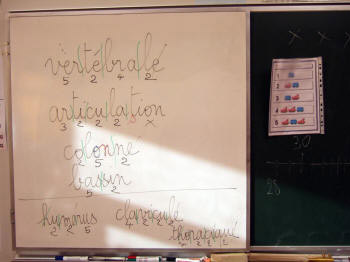 vertébrale
5 2 4 2
articulation
3 2 2 2 x
colonne
2 5 2
bassin
5 2
humérus clavicule
2 2 5 4 2 2 2
thoracique
2 2 2
1
2
3
4
5
30
28